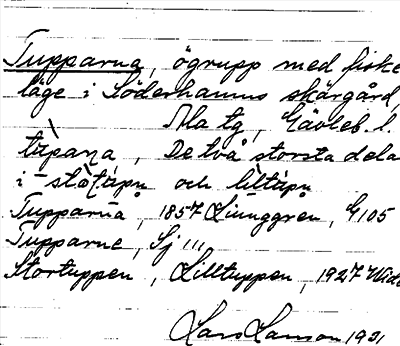 Tupparna, ögrupp med fiske
läge i Söderhamns skärgård,
Ala tg, Gävleb. l.
tùpaṇa, De två största dela
i stòṭùpn och lìltùpn
Tupparnå, 1857 Ljunggren, G 105
Tupparne, Sj 111
Stortuppen, Lilltuppen, 1927
Lars Larson 1931